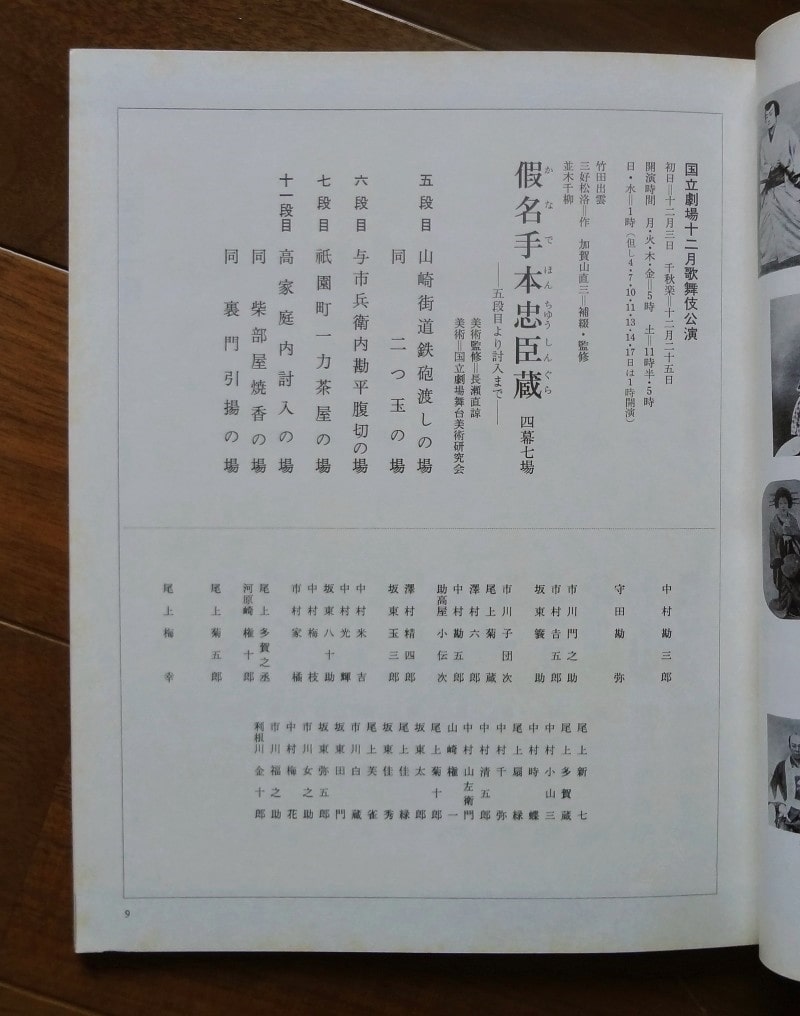 国立劇場十二月歌舞伎公演
初日＝十二月三日　千秋楽＝十二月二十五日
開演時間　月・火・木・金＝5時　土＝11時半・5時
日・水＝1時（但し4・7・10・11・13・14・17日は1時開演）
竹田出雲
三好松洛＝作　加賀山直三＝補綴・監修
並木千柳
かなでほんちゆうしんぐら
假名手本忠臣蔵　四幕七場
──五段目より討入まで──
美術監修＝長瀬直諒
美術＝国立劇場舞台美術研究会
五段目　山崎街道鉄砲渡しの場
同　二つ玉の場
六段目　与市兵衛内勘平腹切の場
七段目　祇園町一力茶屋の場
十一段目　高家庭内討入の場
同　柴部屋焼香の場
同　裏門引揚の場
中村勘三郎
守田勘弥
市川門之助
市村吉五郎
坂東簑助
市川子団次
尾上菊蔵
澤村六郎
中村勘五郎
助高屋小伝次
澤村精四郎
坂東玉三郎
中村米吉
中村光輝
坂東八十助
中村梅枝
市村家橘
尾上多賀之丞
河原崎権十郎
尾上菊五郎
尾上梅幸
尾上新七
尾上多賀蔵
中村小山三
中村時蝶
尾上扇緑
中村千弥
中村清五郎
中村山左衛門
山崎権一
尾上菊十郎
坂東太郎
尾上佳緑
坂東佳秀
尾上芙雀
市川白蔵
坂東田門
坂東弥五郎
市川女之助
中村梅花
市川福之助
利根川金十郎
9